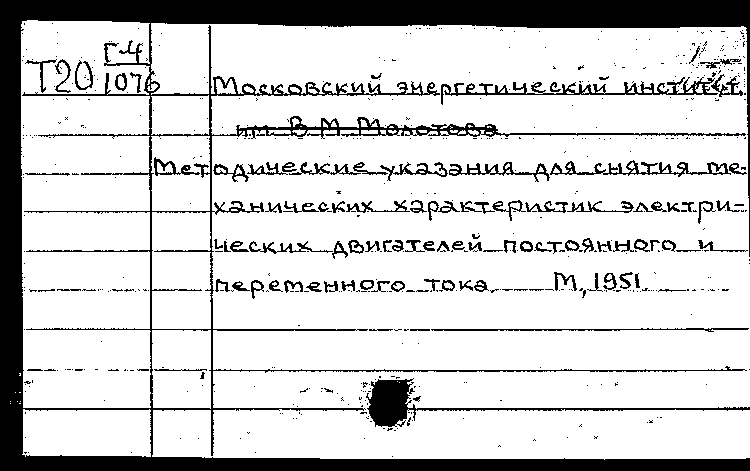 Г-4
Т20 1076
Московский энергетический институт
им. В.М. Молотова
Методические указания для снятия ме-
ханических характеристик электри-
ческих двигателей постоянного и
переменного тока. М, 1951.